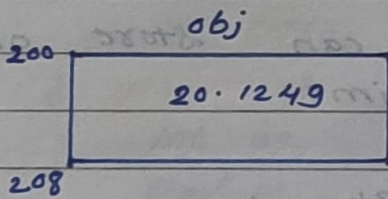 obj
200
20.1249
208